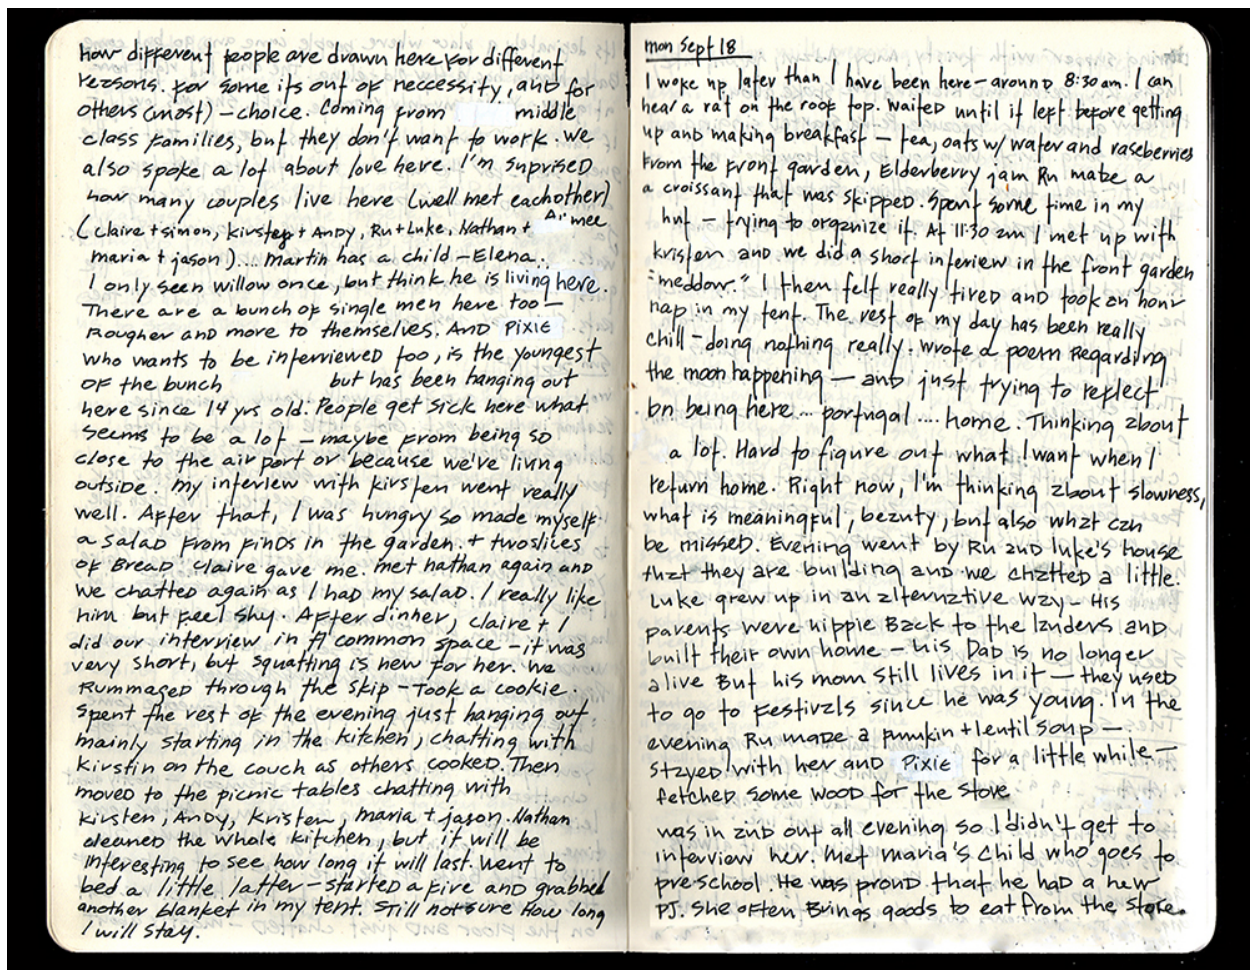 how different people are drawn here for different
reasons. for some its out of neccessity, and for
others (most) – choice. Coming from middle
class families, but they don't want to work. We
also spoke a lot about love here. I'm suprised
how many couples live here (well met eachother)
(claire + simon, Kirsten + Andy, Ru + Luke, Nathan + Aimee
maria + jason)... Martin has a child – Elena..
I only seen willow once, but think he is living here.
There are a bunch of single men here too –
Rougher and more to themselves. And PIXIE
who wants to be interviewed too, is the youngest
of the bunch but has been hanging out
here since 14 yrs old. People get sick here what
seems to be a lot – maybe from being so
close to the airport or because we've living
outside. My interview with kirsten went really
well. After that, I was hungry so made myself
a salad from finds in the garden. + two slices
of Bread Claire gave me. met nathan again and
we chatted again as I had my salad. I really like
him but feel shy. After dinner, claire + I
did our interview in A common space – it was
very short, but squatting is new for her. We
Rummaged through the skip – Took a cookie.
Spent the rest of the evening just hanging out
mainly starting in the kitchen, chatting with
kirstin on the couch as others cooked. Then
moved to the picnic tables chatting with
kirsten, Andy, Kristen, maria + jason. Nathan
cleaned the whole kitchen, but it will be
interesting to see how long it will last. Went to
bed a little latter – started a fire and grabbed
another blanket in my tent. Still not sure How long
I will stay.
mon Sept 18
I woke up later than I have been here – around 8:30 am. I can
hear a rat on the roof top. Waited until it left before getting
up and making breakfast – tea, oats w/ water and raseberries
from the front garden, Elderberry jam Ru made a
a croissant that was skipped. Spent some time in my
hut – trying to organize it. At 11:30 am I met up with
kristen and we did a short interview in the front garden
"meddow." I then felt really tired and took an hour
nap in my tent. The rest of my day has been really
chill – doing nothing really. Wrote a poem Regarding
the moon happening – and just trying to reflect
on being here... portugal .... home. Thinking about
a lot. Hard to figure out what I want when I
return home. Right now, I'm thinking about slowness,
what is meaningful, beauty, but also what can
be missed. Evening went by Ru and luke's house
that they are building and we chatted a little.
Luke grew up in an alternative way – His
parents were hippie Back to the landers and
built their own home – his Dad is no longer
alive But his mom still lives in it – they used
to go to Festivals since he was young. In the
evening Ru made a pumkin + lentil soup –
stayed with her and PIXIE for a little while –
fetched some wood for the stove
was in and out all evening so I didn't get to
interview her. Met maria's child who goes to
preschool. He was proud that he had a new
PJ. She often Brings goods to eat from the store.